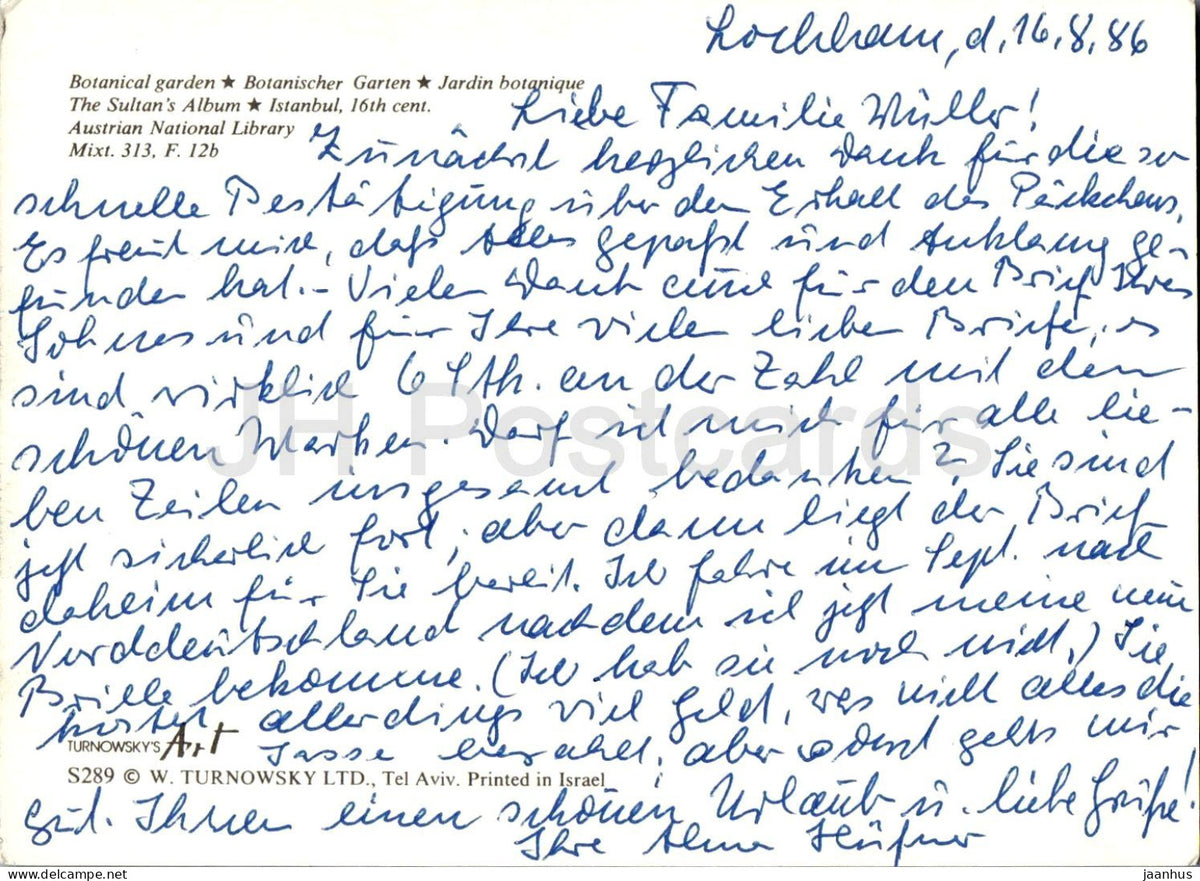 Lochham, d. 16.8.86
Botanical garden ★ Botanischer Garten ★ Jardin botanique
The Sultan's Album ★ Istanbul, 16th cent.
Austrian National Library
Mixt. 313, F. 12b
Liebe Familie Müller!
Zunächst herzlichen Dank für die so
schnelle Bestätigung über den Erhalt des Päckchens.
Es freut mich, daß Alles gepaßt und Anklang ge-
funden hat. - Vielen Dank auch für den Brief Ihres
Sohnes und für Ihre vielen lieben Briefe, es
sind wirklich 6 Stk. an der Zahl mit den
schönen Marken. Darf ich mich für alle lie-
ben Zeilen insgesamt bedanken? Sie sind
jetzt sicherlich fort, aber dann liegt der Brief
daheim für Sie bereit. Ich fahre im Sept. nach
Norddeutschland nachdem ich jetzt meine neue
Brille bekomme. (Ich hab sie noch nicht.) Sie
kostet allerdings viel Geld, was nicht alles die
Kasse bezahlt, aber sonst gehts mir
gut. Ihnen einen schönen Urlaub u. liebe Grüße!
Ihre Alma Hüfner
TURNOWSKY'S Art
S289 © W. TURNOWSKY LTD., Tel Aviv. Printed in Israel
JH Postcards
hippostcard.com
jaanhus